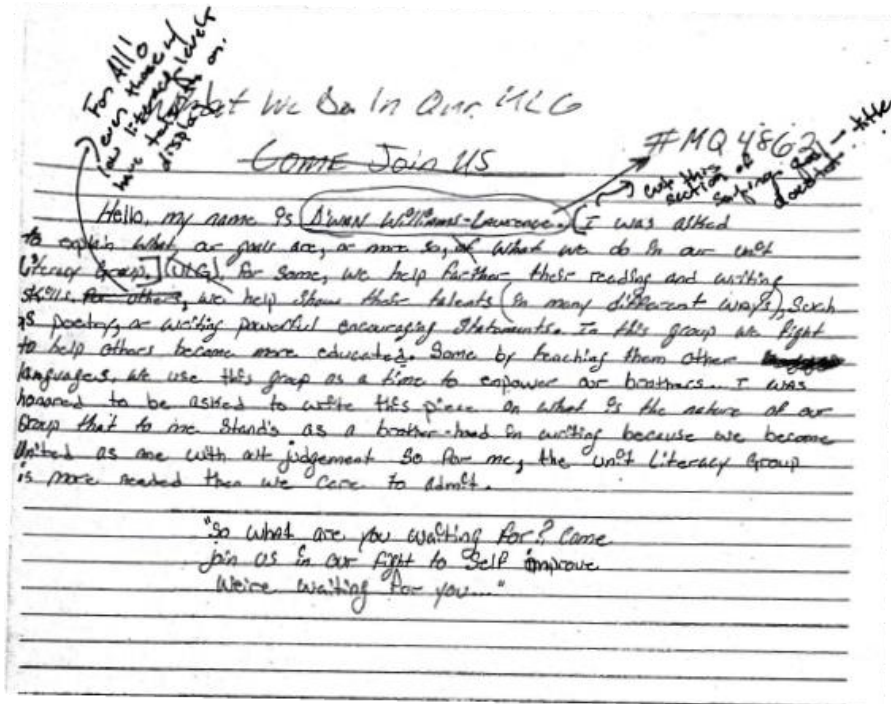 For All!
even those w/
low literacy levels
have talents on
display.
What We Do In Our ULG
Come Join US
#MQ4863
cut this
section of
saying and
title
Hello, my name is A'wan Williams-Lawrence. [I was asked
to explain what our goals are, or more so, of what we do in our unit
Literacy Group.] (ULG). For some, we help further their reading and writing
skills. For others, we help show their talents (in many different ways), such
as poetry, or writing powerful encouraging statements. In this group we fight
to help others become more educated. Some by teaching them other
languages. We use this group as a time to enpower our brothers... I was
honored to be asked to write this piece on what is the nature of our
Group that to me stand's as a brother-hood in writing because we become
United as one with out judgement So for me, the unit Literacy Group
is more needed then we care to admit.
"So what are you waiting for? Come
join us in our fight to self improve
We're waiting for you..."